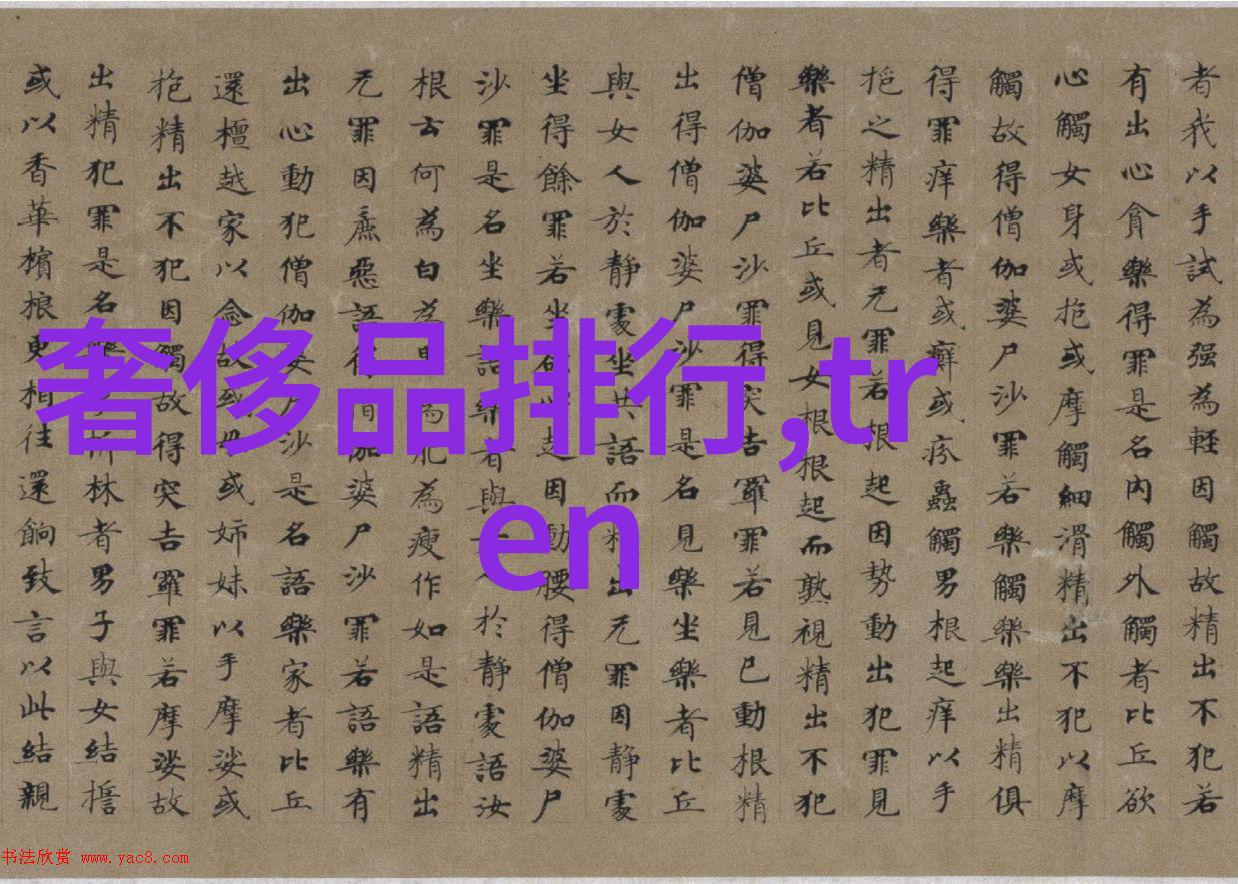 者我以手試為强為軽因觸故精出不犯若
有出心貪樂得罪是名内觸外觸者比丘欲
心觸女身或抱或摩觸細滑精出不犯以摩
觸故得僧伽婆尸沙罪若樂觸樂樂出精俱
得罪痒樂者或癬或疥蟲觸男根起痒以手
抱之精出者无罪若根起因势動出犯罪見
樂者若比丘或見女根根起而熟視精出不犯
僧伽婆尸沙罪得突吉羅罪若見已動根精
出得僧伽婆尸沙罪是名見樂坐樂者比丘
與女人於静處坐共語而精出无罪因静處
坐得餘罪若坐欲心起因動腰得僧伽婆尸
沙罪是名坐樂語樂者與女人於静處語汝
根云何為白為黑為肥為瘦作如是語精出
无罪因麁惡語得僧伽婆尸沙罪若語樂有
出心動犯僧伽婆尸沙是名語樂家者比丘
還檀越家以念故或母或姉妹以手摩娑或
抱精出不犯因觸故得突吉羅罪若摩娑故
出精犯罪是名樂折林者男子與女結誓
或以香華檳榔更相往還餉致言以此結親
奢侈品排行,tr
en
书法欣赏 www.yac8.com